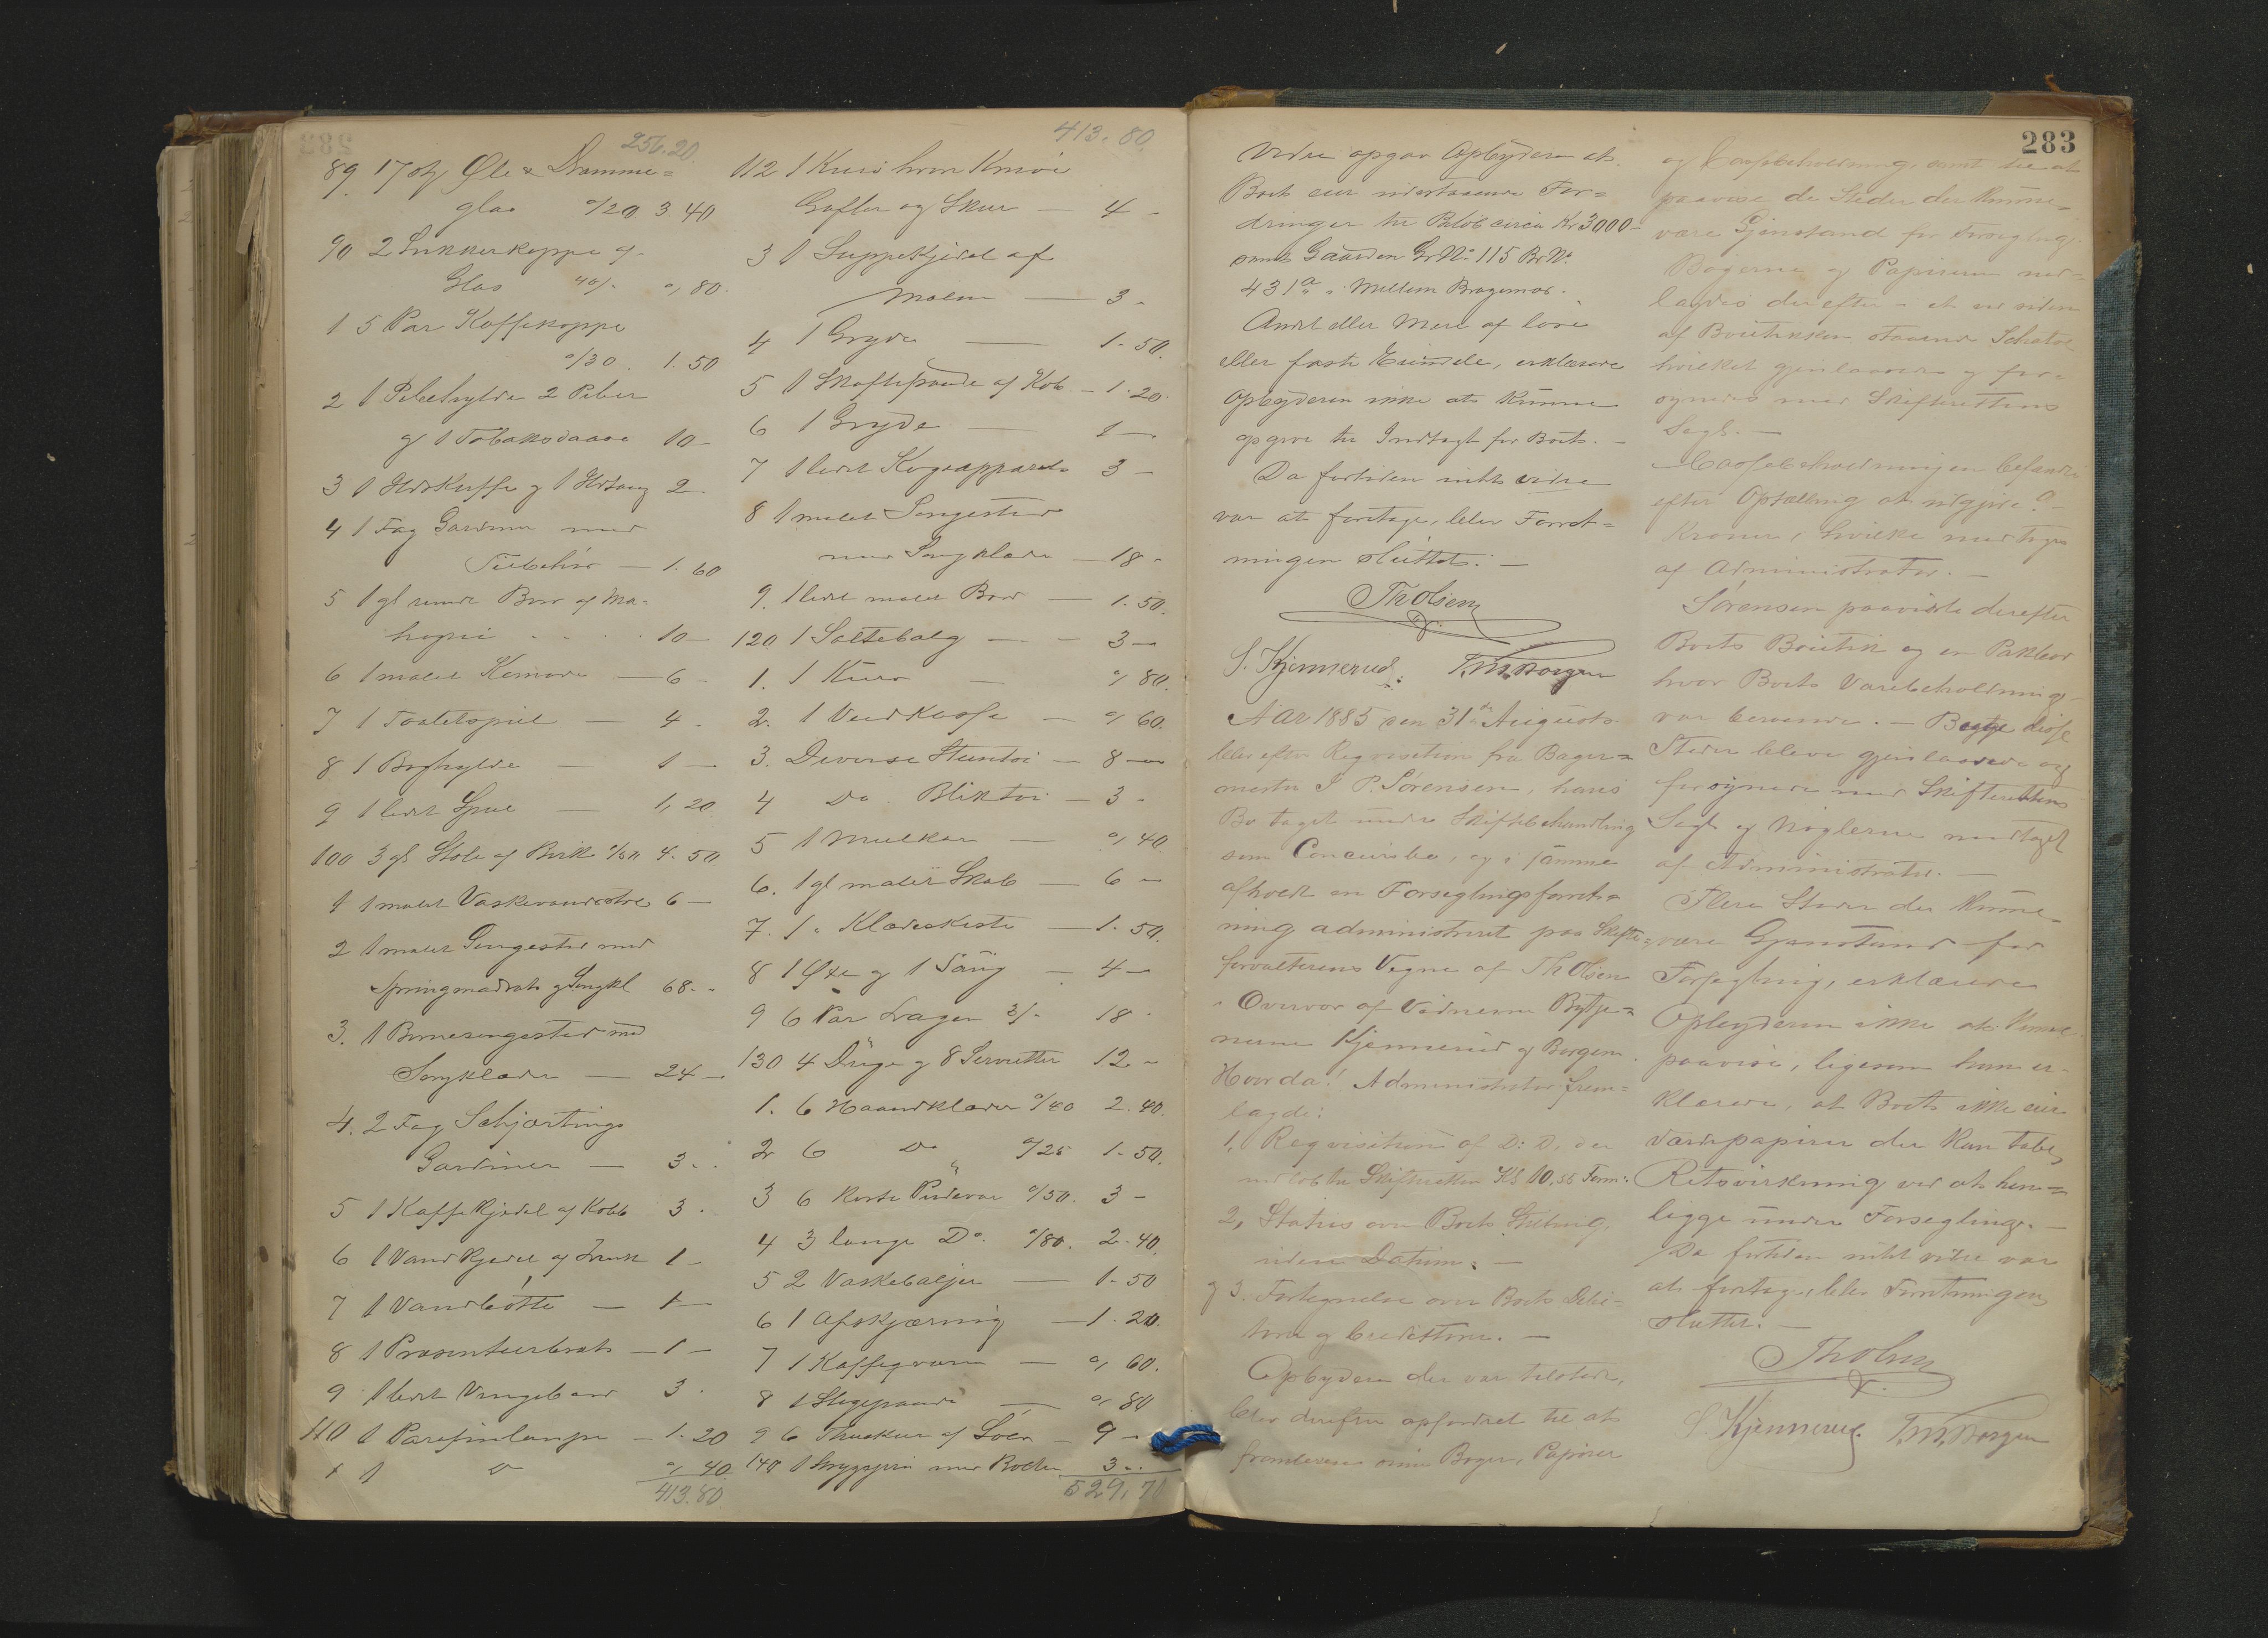 256.20
89 17 stk Øle & Dramme=
glas a/20 3.40
90 2 Sukkerkopper af
Glas 40/- 0,80.
1 5 Par Kaffekopper
a/30. 1.50
2 1 Pibehylde 2 Piber
og 1 Tobaksdaase 10-
3 1 Ildskuffe og 1 Ildtang 2-
4 1 Fag Gardiner med
Tilbehør — 1.60
5 1 gl rundt Bord af Ma=
hogni 10-
6 1 malet Komode — 6-
7 1 Toiletspeil — 4-
8 1 Boghylde — 1-
9 1 lidet Speil — 1,20
100 3 gl Stole af Birk 4.50
1 1 malet Vaskevandsstol 6-
2 1 malet Sengested med
Springmadrats og Sengkl 68.-
3. 1 Børnesengested med
Sengklæder — 24-
4. 2 Fag Schjærtings
Gardiner — 3.-
5 1 Kaffekjedel af Kobb 3.
6 1 Vandkjedel af 1-
7 1 Vandbøtte — 1-
8 1 Præsenteerbret — 1-
9 1 lidet Vingebord 3.
110 1 Parafinlampe — 1.20
1 1 Do 0,40.
413.80
413.80.
112 1 Kurv hvori Knive
Gafler og Skeer — 4-
3 1 Suppekjedel af
Malm — 3-
4 1 Gryde — 1.50.
5 1 Skaftepande af Kob — 1.20.
6 1 Gryde — 1-
7 1 lidet Kogeapparat 3-
8 1 malet Sengested
med Sengklæder — 18-
9. 1 lidet malet Bord — 1.50.
120 1 Saltebalg — 3-
1. 1 Kurv — 0,80.
2. 1 Vedkasse — 0,60.
3. Diverse Stentøi — 8-
4 Do Bliktøi — 3-
5 1 Melkar — 0,40
6. 1 gl malet Skab — 6-
7. 1 " Klædeskiste — 1.50.
8 1 Øxe og 1 Saug — 4-
9 6 Par Lagen 3/- 18-
130 4 Duge og 8 Servietter 12-
1. 6 Haandklæder a/40 2.40.
2 6 Do a/25 1.50.
3 6 korte Pudevar a/50. 3-
4 3 lange Do. a/80. 2.40.
5 2 Vaskebaljer — 1.50
6 1 Opskjæring — 1.20.
7 1 Kaffeqværn — 0,60.
8 1 Stegepande — 0,80
9 6 Theskeer af Sølv — 9-
140 1 Strygejern med Bolter 3.-
529,70
283
Videre opgav Opbyderen at
Boet eier udestaaende For=
dringer til Beløb circa Kr 3000-
samt Gaarden Gr No: 115 Br No.
431a, Mellem Bragernæs.
Andet eller Mere af løse
eller faste Eiendele, erklærede
Opbyderen ikke at kunne
opgive til Indtægt for Boet. -
Da fortiden intet videre
var at foretage, blev Forret=
ningen sluttet. —
Th Olsen
S. Kjennerud. T. M. Borgen
Aar 1885 den 31te Augusts
blev efter Reqvisition fra Bager=
mester S P. Sørensen, hans
Bo taget under Skiftebehandling
som Concursbo, og i samme
afholdt en Forseglingsforret=
ning administreret paa Skifte=
forvalterens Vegne af Th Olsen
i Overvær af Vidnerne Bytje=
nerne Kjennerud og Borgen.
Hvorda! Administrator frem=
lagde:
1, Reqvisition af D: D, der
indløb til Skifteretten Kl 10,55 Form:
2, Status over Boets Stilling,
uden Datum: —
og 3. Fortegnelse over Boets Debi=
torer og Creditorer. —
Opbyderen der var tilstede,
blev derefter opfordret til at
fremlevere sine Bøger, Papirer
og Cassebeholdning, samt til at
paavise de Steder der kunne
være Gjenstand for Forsegling.
Bøgerne og Papirerne ned=
lagdes derefter i et ved siden
af Boutikken staaende Schatol
hvilket gjenlaasedes og for=
synedes med Skifterettens
Segl. —
Cassebeholdningen befandtes
efter Optælling at udgjøre 9-
Kroner, hvilke modtoges
af Administrator. —
Sørensen paaviste derefter
Boets Boutik og en Pakbod
hvor Boets Varebeholdning
var beroende. — Begge disse
Steder bleve gjenlaasede og
forsynede med Skifterettens
Segl og Nøglerne modtaget
af Administrator. —
Flere Steder der kunne
være Gjenstand for
Forsegling, erklærede
Opbyderen ikke at kunne
paavise, ligesom han er=
klærede, at Boet ikke eier
Værdipapirer der kan tabe
Retsvirkning ved at hen=
ligge under Forsegling. —
Da fortiden intet videre var
at foretage, blev Forretningen
sluttet. —
Th Olsen
S. Kjennerud. T. M. Borgen